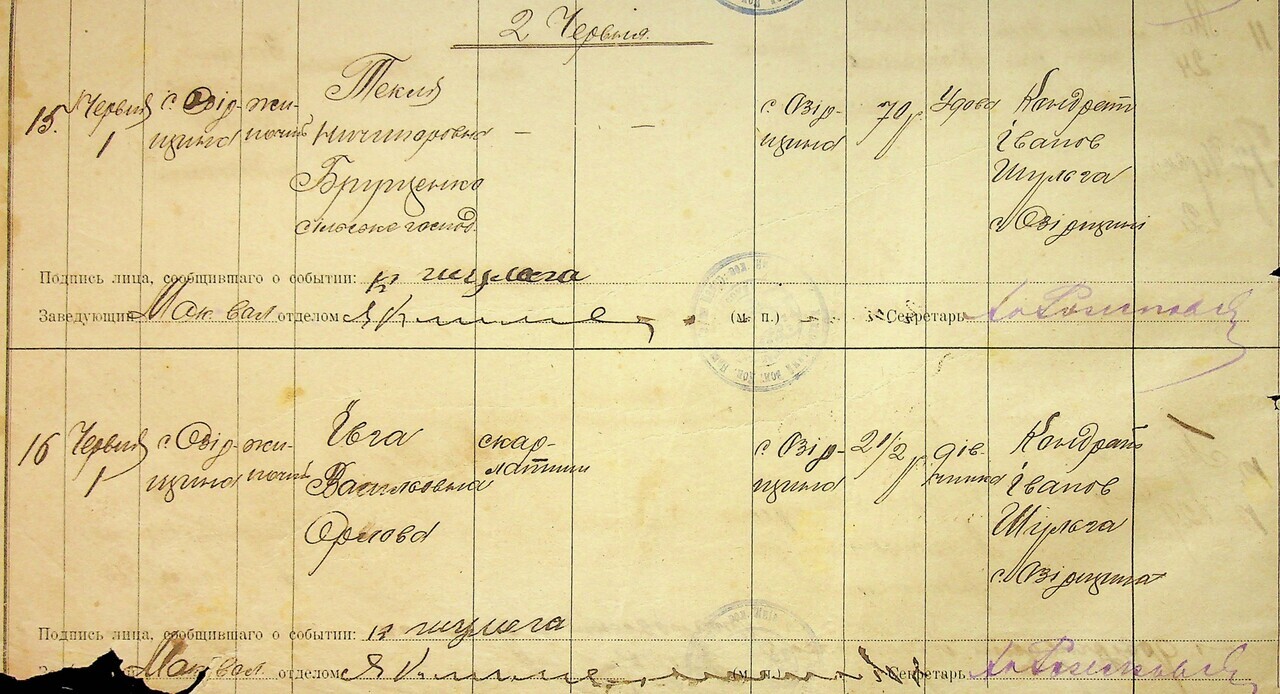 2 Червня.
15. Червня 1 с. Озір-щина жи-ночий Текля Ничипоровна Бруценко сільське господ. — — с. Озір-щина 70 р. Удова Кондрат Іванов Шульга с. Озірщини
Подпись лица, сообщившего о событии: К Шульга
Заведующий отделом (м. п.) Секретарь
16 Червня 1 с. Озір-щина жи-ночий Ївга Васильовна Орлова скар-латини с. Озір-щина 2 1/2 р. дів-чинка Кондрат Іванов Шульга с. Озірщина
Подпись лица, сообщившего о событии: К Шульга
отделом (м. п.) Секретарь